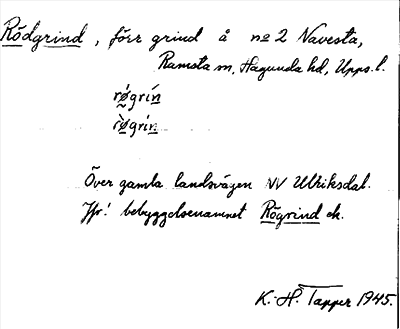 Rödgrind, förr grind å no 2 Navesta,
Ramsta sn, Hagunda hd, Upps. l.
rø̀grín
rø̀grín
Över gamla landsvägen NV Ulriksdal.
Jfr! bebyggelsenamnet Rögrind ek.
K.-H. Tapper 1945.